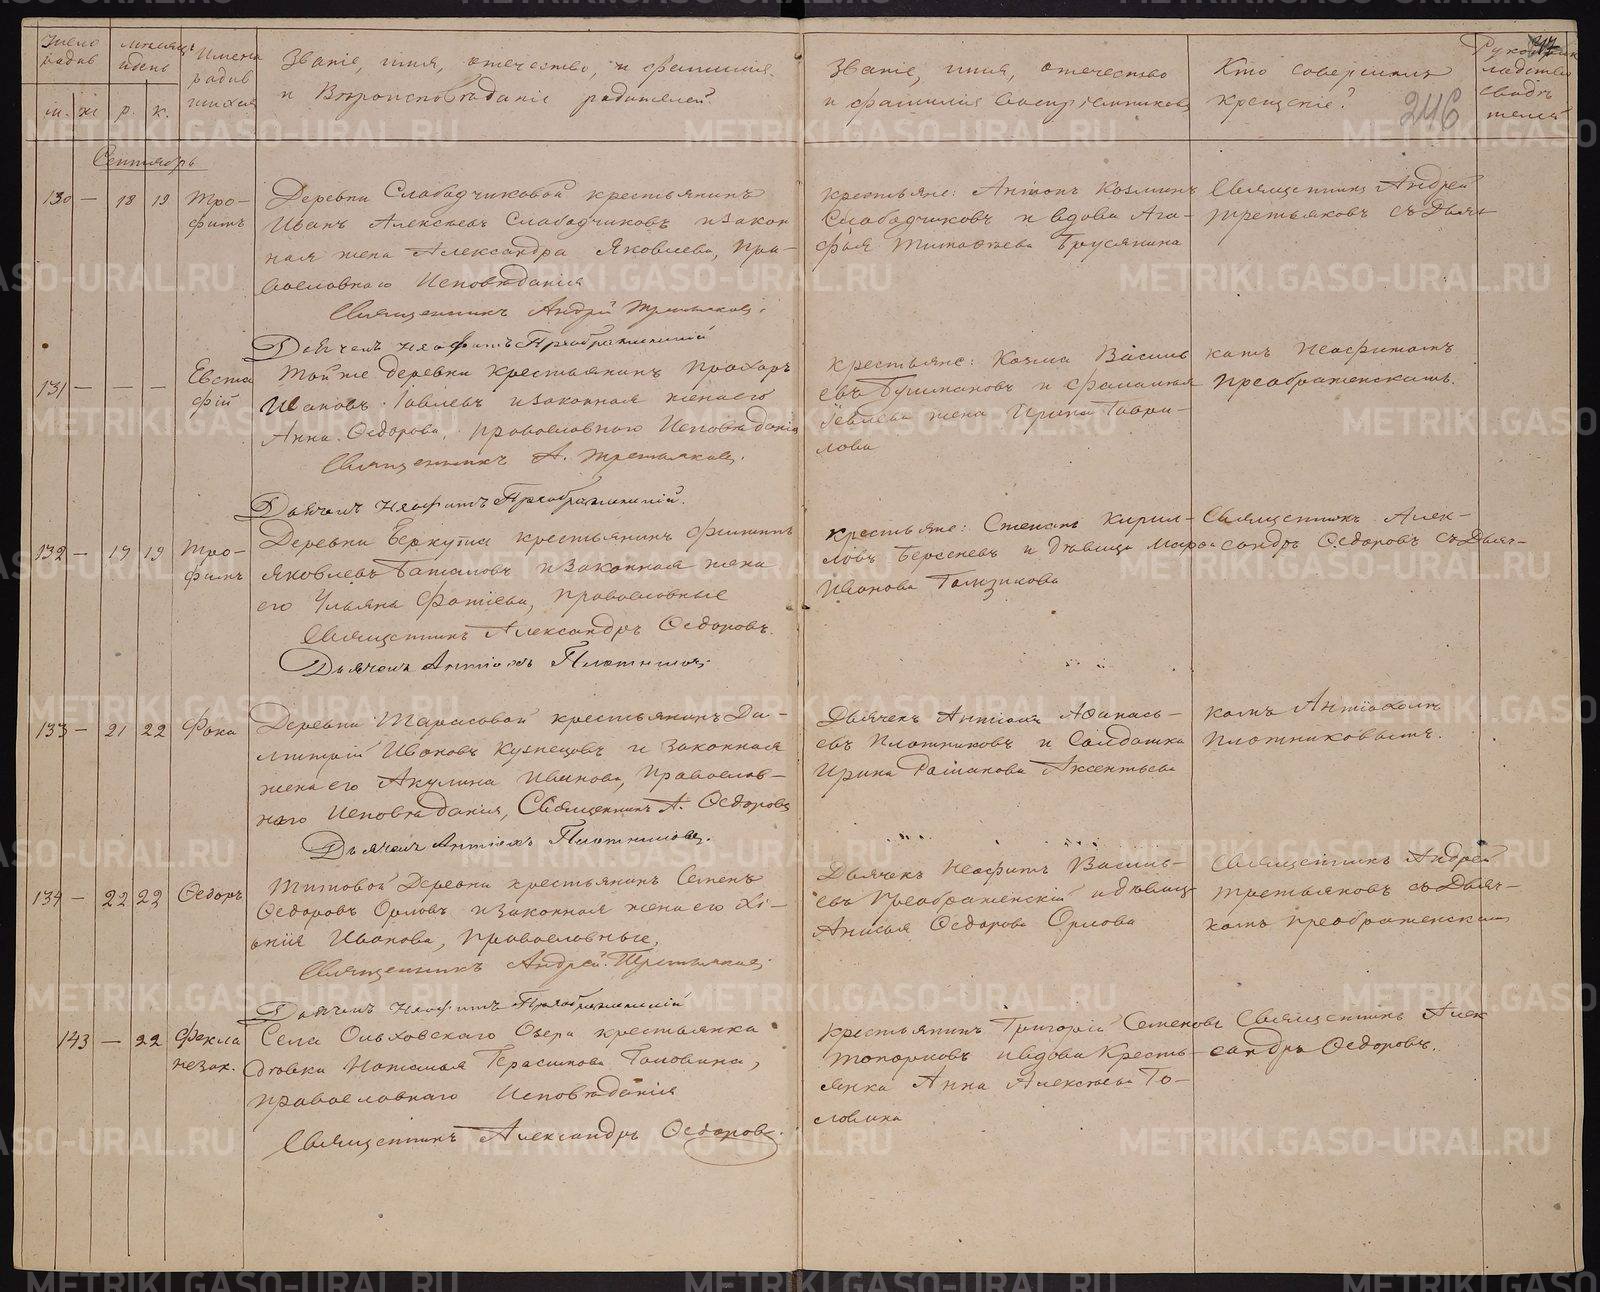 Число родив
мѣсяцъ и день
Имена родив шихся
Званіе, имя, отечество, и фамилія
и Вѣроисповѣданіе родителей.
Званіе, имя, отечество
и фамилія воспріемниковъ
Кто совершалъ
крещеніе?
246
м. ж. р. к.
Сентябрь
130 — 18 19 Тро-
фимъ
Деревни Слободчиковой крестьянинъ
Иванъ Алексѣевъ Слободчиковъ и закон
ная жена Александра Яковлева, пра-
вославнаго Исповѣданія
Священникъ Андрей Третьяковъ.
Дьячекъ Неофитъ Преображенскій
крестьяне: Антонъ Козминъ
Слободчиковъ и вдова Ага-
фья Тимофѣева Брусянина
Священникъ Андрей
Третьяковъ съ Дьяч-
131 — — — Евста
фій
Той же деревни крестьянинъ Прохоръ
Ивановъ Іовлевъ и законная жена его
Анна Ѳедорова, православнаго Исповѣданія
Священникъ А. Третьяковъ.
Дьячекъ Неофитъ Преображенскій.
крестьяне: Козма Василь
евъ и
Іевлева жена Ирина Гаври-
лова
комъ Неофитомъ
Преображенскимъ.
132 — 17 19 Тро-
фимъ
Деревни Беркутки крестьянинъ Филиппъ
Яковлевъ Баталовъ и законная жена
его Ульяна Фотіева, православные
Священникъ Александръ Ѳедоровъ.
Дьячекъ Антіохъ Плотниковъ.
крестьяне: Степанъ Кирил-
ловъ Берсеневъ и дѣвица Марѳа
Иванова
Священникъ Алек-
сандръ Ѳедоровъ съ Дьяч-
133 — 21 22 Фока
Деревни Тарасовой крестьянинъ Ди-
митрій Ивановъ Кузнецовъ и законная
жена его Акулина Иванова, Православ-
наго Исповѣданія, Священникъ А. Ѳедоровъ
Дьячекъ Антіохъ Плотниковъ.
Дьячекъ Антіохъ Аѳанась-
евъ Плотниковъ и Солдатка
Ирина Романова Аксентьева
комъ Антіохомъ
Плотниковымъ.
134 — 22 22 Ѳедоръ
Титовой Деревни крестьянинъ Семенъ
Ѳедоровъ Орловъ и законная жена его Хі-
онія Иванова, Православные,
Священникъ Андрей Третьяковъ
Дьячекъ Неофитъ Преображенскій
Дьячекъ Неофитъ Василь-
евъ Преображенскій и дѣвица
Анисья Ѳедорова Орлова
Священникъ Андрей
Третьяковъ съ Дьяч-
комъ Преображенскимъ
143 — 22 Ѳекла
незак.
Села Ольховскаго Озера крестьянка
дѣвка Наталья Герасимова Головина,
православнаго Исповѣданія
Священникъ Александръ Ѳедоровъ.
крестьянинъ Григорій Семеновъ
Топорковъ и вдова Кресть-
янка Анна Алексѣева Го-
ловина
Священникъ Алек
сандръ Ѳедоровъ.
METRIKI.GASO-URAL.RU